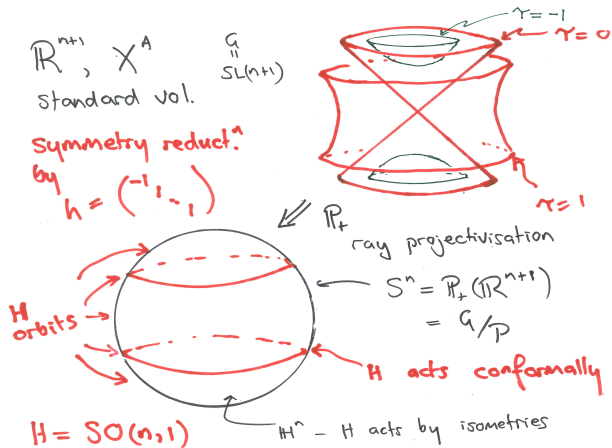 ℝⁿ⁺¹, X^A
standard vol.
G
=
SL(n+1)
symmetry reduct.ⁿ
by
h = (-1, 1, ⋱ 1)
τ=-1
τ=0
τ=1
ℙ₊
ray projectivisation
Sⁿ = ℙ₊(ℝⁿ⁺¹)
= G/P
H
orbits
H acts conformally
ℍⁿ – H acts by isometries
H = SO(n,1)